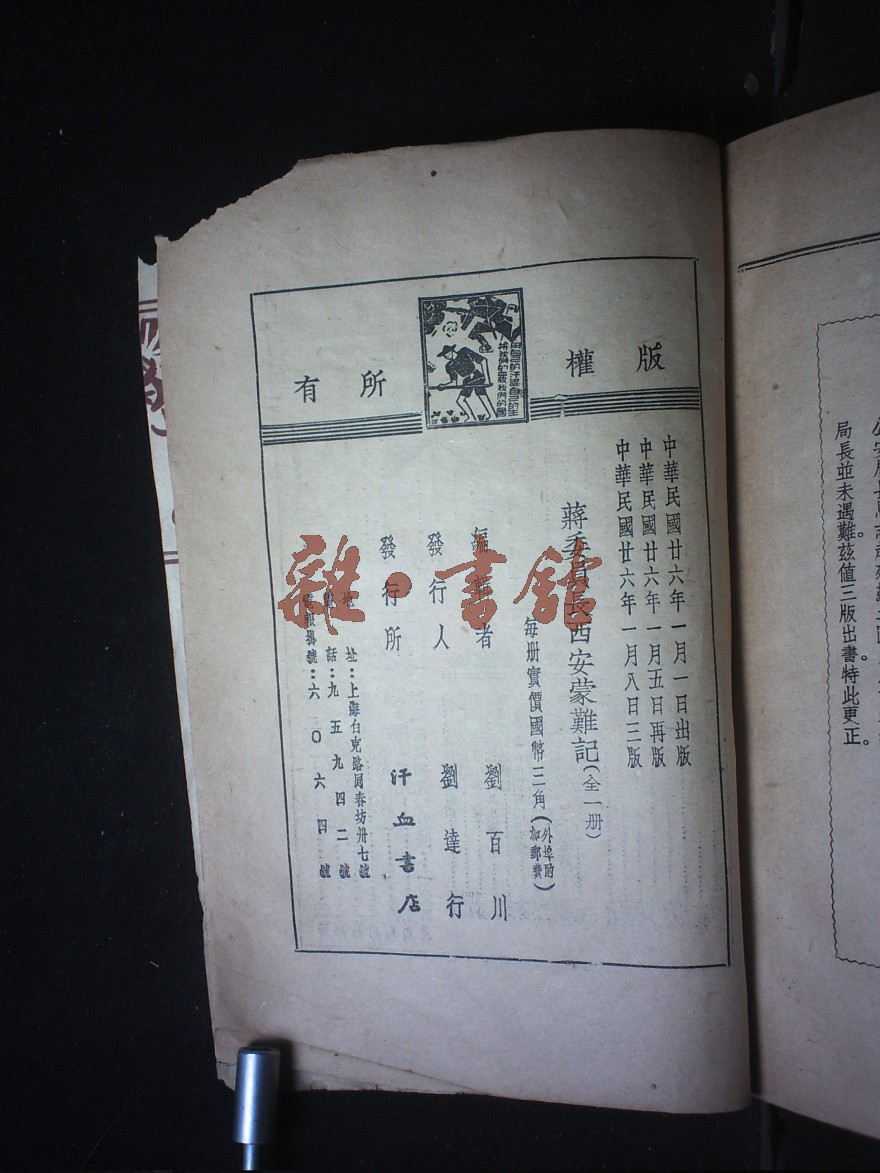 版權所有
中華民國廿六年一月一日出版
中華民國廿六年一月五日再版
中華民國廿六年一月八日三版
蔣委員長西安蒙難記(全一册)
每册實價國幣三角(外埠酌加郵費)
編著者 劉百川
發行人 劉達行
發行所 汗血書店
地址:上海白克路同春坊卅七號
電話:九五九四二號
電報掛號:六〇六四號
雜·書館
局長並未遇難。茲值三版出書。特此更正。